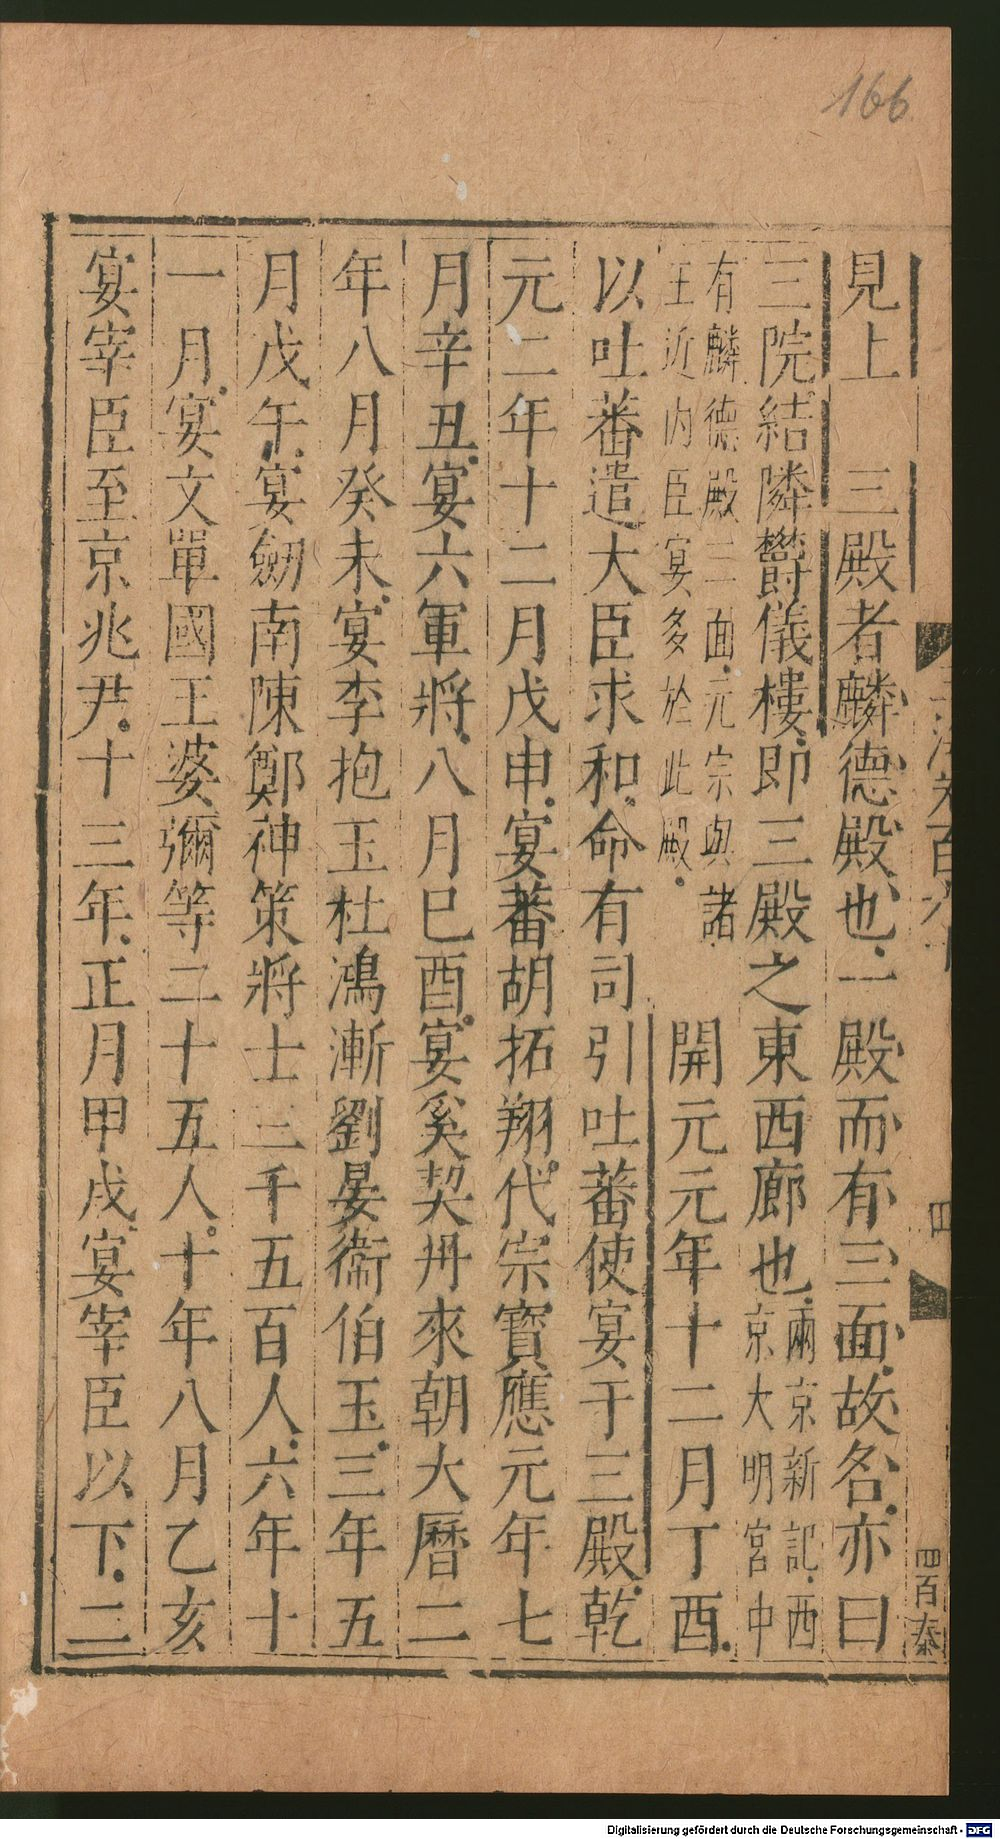 166
見上 三殿者麟德殿也一殿而有三面故名亦曰
三院結隣鬱儀樓即三殿之東西廊也兩京新記西京大明宮中
有麟德殿三面元宗與諸王近內臣宴多於此殿 開元元年十二月丁酉
以吐蕃遣大臣求和命有司引吐蕃使宴于三殿乾
元二年十二月戊申宴蕃胡拓翔代宗寶應元年七
月辛丑宴六軍將八月巳酉宴奚契丹來朝大曆二
年八月癸未宴李抱玉杜鴻漸劉晏衞伯玉三年五
月戊午宴劒南陳鄭神策將士三千五百人六年十
一月宴文單國王婆彌等二十五人十年八月乙亥
宴宰臣至京兆尹十三年正月甲戌宴宰臣以下二
四
四百泰
Digitalisierung gefördert durch die Deutsche Forschungsgemeinschaft - DFG